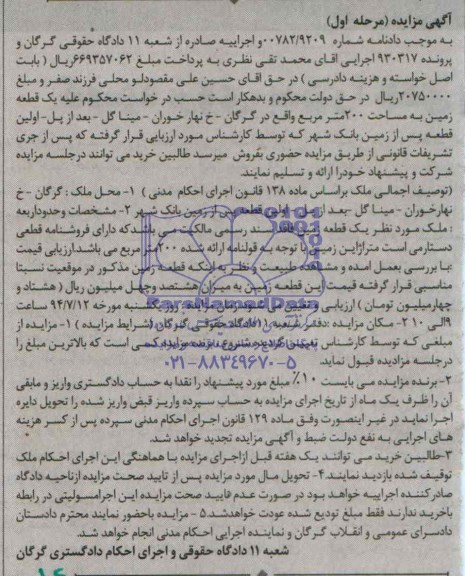 آگهی مزایده (مرحله اول)
به موجب دادنامه شماره ۰۰۷۸۲/۹۲۰۹ و اجراییه صادره از شعبه ۱۱ دادگاه حقوقی گرگان و
پرونده ۹۳۰۳۱۷ اجرایی آقای محمد تقی نظری به پرداخت مبلغ ۶۶۹۳۵۷۰۶۲ریال ( بابت
اصل خواسته و هزینه دادرسی ) در حق آقای حسین علی مقصودلو محلی فرزند صفر و مبلغ
۲۰۷۵۰۰۰۰ریال در حق دولت محکوم و بدهکار است حسب در خواست محکوم علیه یک قطعه
زمین به مساحت ۲۰۰متر مربع واقع در گرگان -خ نهار خوران - مینا گل -بعد از پل- اولین
قطعه پس از زمین بانک شهر که توسط کارشناس مورد ارزیابی قرار گرفته که پس از جری
تشریفات قانونی از طریق مزایده حضوری بفروش میرسد طالبین خرید می توانند درجلسه مزایده
شرکت و پیشنهاد خودرا ارائه و تسلیم نمایند.
(توصیف اجمالی ملک براساس ماده ۱۳۸ قانون اجرای احکام مدنی ) ۱- محل ملک : گرگان -خ
نهارخوران - مینا گل -بعد از پل- اولین قطعه پس از زمین بانک شهر ۲- مشخصات وحدوداربعه
: ملک مورد نظر یک قطعه زمین فاقد سند رسمی مالکیت می باشد که دارای فروشنامه قطعی
دستارمی است متراژاین زمین با توجه به قولنامه ارائه شده ۲۰۰متر مربع می باشد ارزیابی قیمت
:با بررسی بعمل امده و مشاهده طبیعت و نظر به اینکه قطعه زمین مذکور در موقعیت نسبتا
مناسبی قرار گرفته قیمت این قطعه زمین به میزان هشتصد وچهل میلیون ریال ( هشتاد و
چهارمیلیون تومان ) ارزیابی و تعیین می شود زمان مزایده : روز یکشنبه مورخه ۹۴/۷/۱۲ ساعت
۹الی ۱۰ ۲- مکان مزایده :دفتر شعبه ۱۱دادگاه حقوقی گرگان (شرایط مزایده ) ۱- مزایده از
مبلغی که توسط کارشناس تعیین گردیده شروع برنده مزایده کسی است که بالاترین مبلغ را
درجلسه مزایده قبول نماید.
۲-برنده مزایده می بایست ۱۰٪ مبلغ مورد پیشنهاد را نقدا به حساب دادگستری واریز و مابقی
آن را ظرف یک ماه از تاریخ اجرای مزایده به حساب سپرده واریز قبض واریز شده را تحویل دایره
اجرا نماید در غیر اینصورت وفق ماده ۱۲۹ قانون اجرای احکام مدنی سپرده پس از کسر هزینه
های اجرایی به نفع دولت ضبط و آگهی مزایده تجدید خواهد شد.
۳-طالبین خرید می توانند یک هفته قبل ازاجرای مزایده با هماهنگی این اجرای احکام ملک
توقیف شده بازدید نمایند.۴- تحویل مال مورد مزایده پس از تایید صحت مزایده ازناحیه دادگاه
صادرکننده اجراییه خواهد بود در صورت عدم تایید صحت مزایده این اجرامسولیتی در رابطه
باخرید ندارند فقط مبلغ تودیع شده عودت خواهدشد.۵- مزایده باحضور نماینده محترم دادستان
دادسرای عمومی و انقلاب گرگان و نماینده اجرایی احکام مدنی انجام خواهد شد.
شعبه ۱۱ دادگاه حقوقی و اجرای احکام دادگستری گرگان
۰۲۱-۸۸۳۴۹۶۷۰-۵